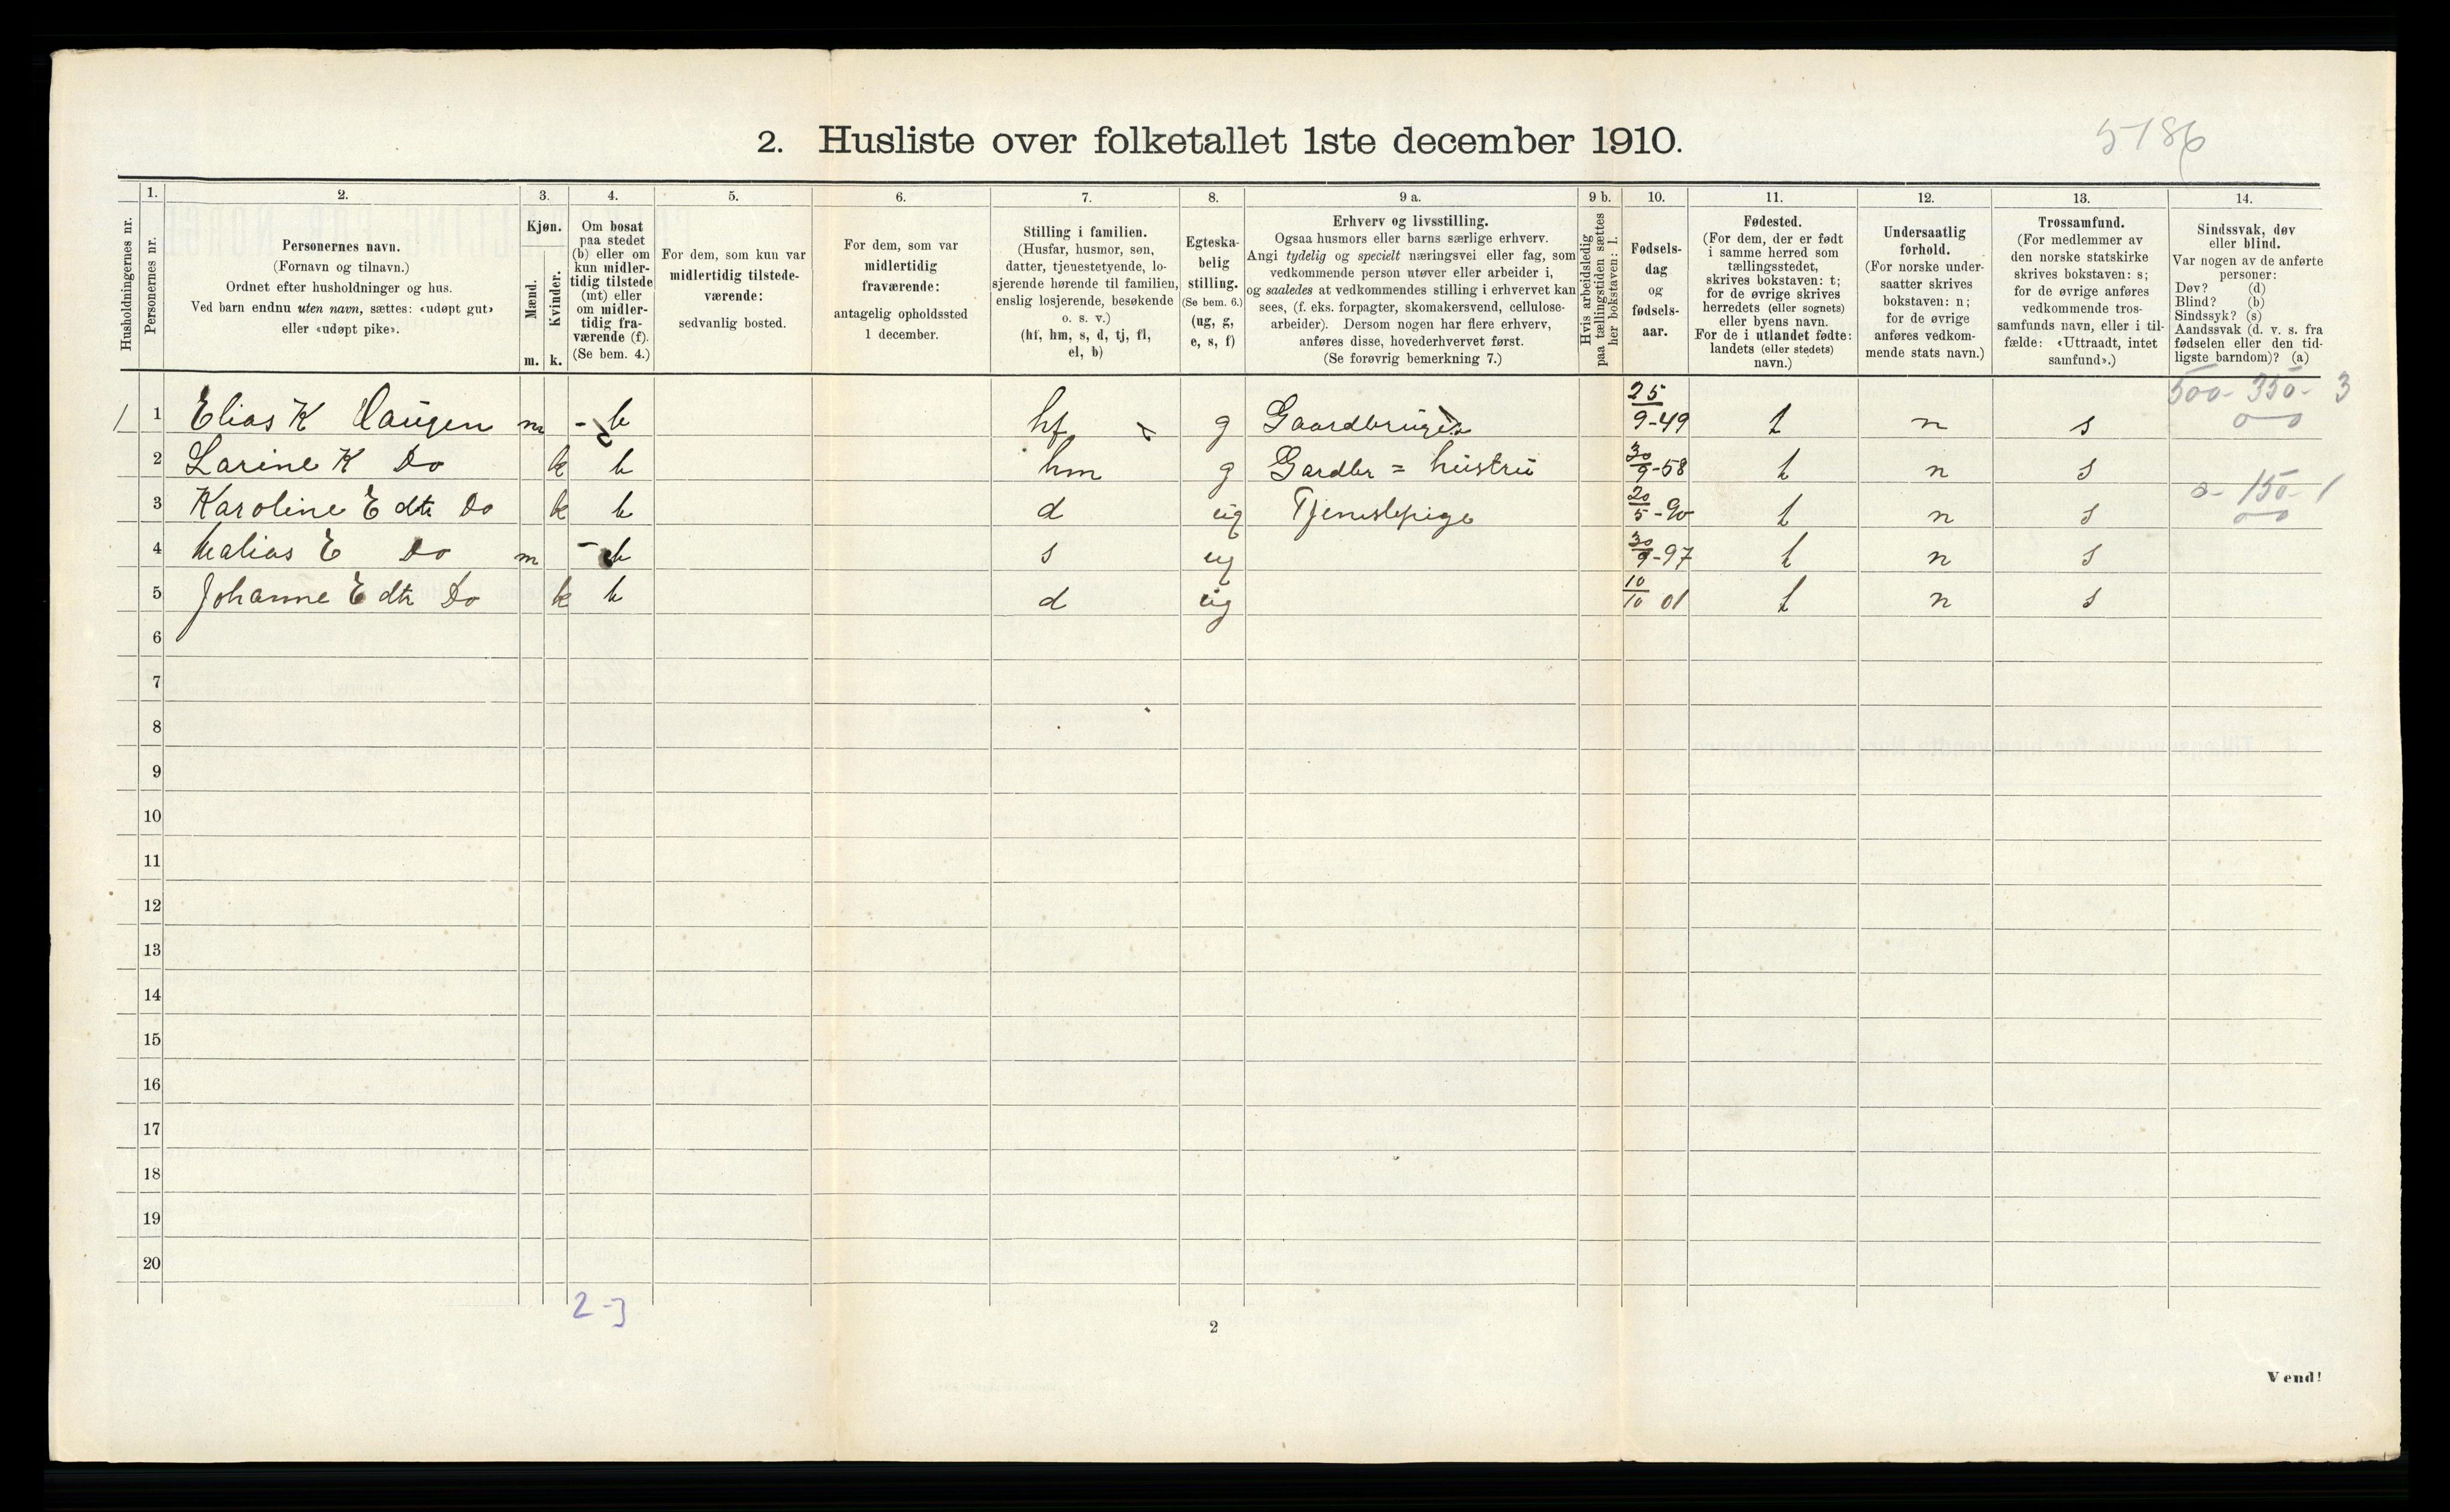 5186
2. Husliste over folketallet 1ste december 1910.
Husholdningernes nr.
1.
Personernes nr.
2.
Personernes navn.
(Fornavn og tilnavn.)
Ordnet efter husholdninger og hus.
Ved barn endnu uten navn, sættes: «udøpt gut»
eller «udøpt pike».
3.
Kjøn.
Mænd.
Kvinder.
m. k.
4.
Om bosat
paa stedet
(b) eller om
kun midler-
tidig tilstede
(mt) eller
om midler-
tidig fra-
værende (f).
(Se bem. 4.)
5.
For dem, som kun var
midlertidig tilstede-
værende:
sedvanlig bosted.
6.
For dem, som var
midlertidig
fraværende:
antagelig opholdssted
1 december.
7.
Stilling i familien.
(Husfar, husmor, søn,
datter, tjenestetyende, lo-
sjerende hørende til familien,
enslig losjerende, besøkende
o. s. v.)
(hf, hm, s, d, tj, fl,
el, b)
8.
Egteska-
belig
stilling.
(Se bem. 6.)
(ug, g,
e, s, f)
9 a.
Erhverv og livsstilling.
Ogsaa husmors eller barns særlige erhverv.
Angi tydelig og specielt næringsvei eller fag, som
vedkommende person utøver eller arbeider i,
og saaledes at vedkommendes stilling i erhvervet kan
sees, (f. eks. forpagter, skomakersvend, cellulose-
arbeider). Dersom nogen har flere erhverv,
anføres disse, hovederhvervet først.
(Se forøvrig bemerkning 7.)
9 b.
Hvis arbeidsledig
paa tællingstiden sættes
her bokstaven: l.
10.
Fødsels-
dag
og
fødsels-
aar.
11.
Fødested.
(For dem, der er født
i samme herred som
tællingsstedet,
skrives bokstaven: t;
for de øvrige skrives
herredets (eller sognets)
eller byens navn.
For de i utlandet fødte:
landets (eller stedets)
navn.)
12.
Undersaatlig
forhold.
(For norske under-
saatter skrives
bokstaven: n;
for de øvrige
anføres vedkom-
mende stats navn.)
13.
Trossamfund.
(For medlemmer av
den norske statskirke
skrives bokstaven: s;
for de øvrige anføres
vedkommende tros-
samfunds navn, eller i til-
fælde: «Uttraadt, intet
samfund».)
14.
Sindssvak, døv
eller blind.
Var nogen av de anførte
personer:
Døv? (d)
Blind? (b)
Sindssyk? (s)
Aandssvak (d. v. s. fra
fødselen eller den tid-
ligste barndom)? (a)
500- 350- 3
1 1 Elias K Haugen m - b hf g Gaardbruger 25/9-49 t n s
2 Larine K Do k b hm g Gardbr = hustru 30/9-58 t n s
150- 1
3 Karoline E dtr Do k b d ug Tjenestepige 20/5-90 t n s
4 Malias E Do m - b s ug 30/9-97 t n s
5 Johanne E dtr Do k b d ug 10/10 01 t n s
6
7
8
9
10
11
12
13
14
15
16
17
18
19
20
2-3
2
Vend!